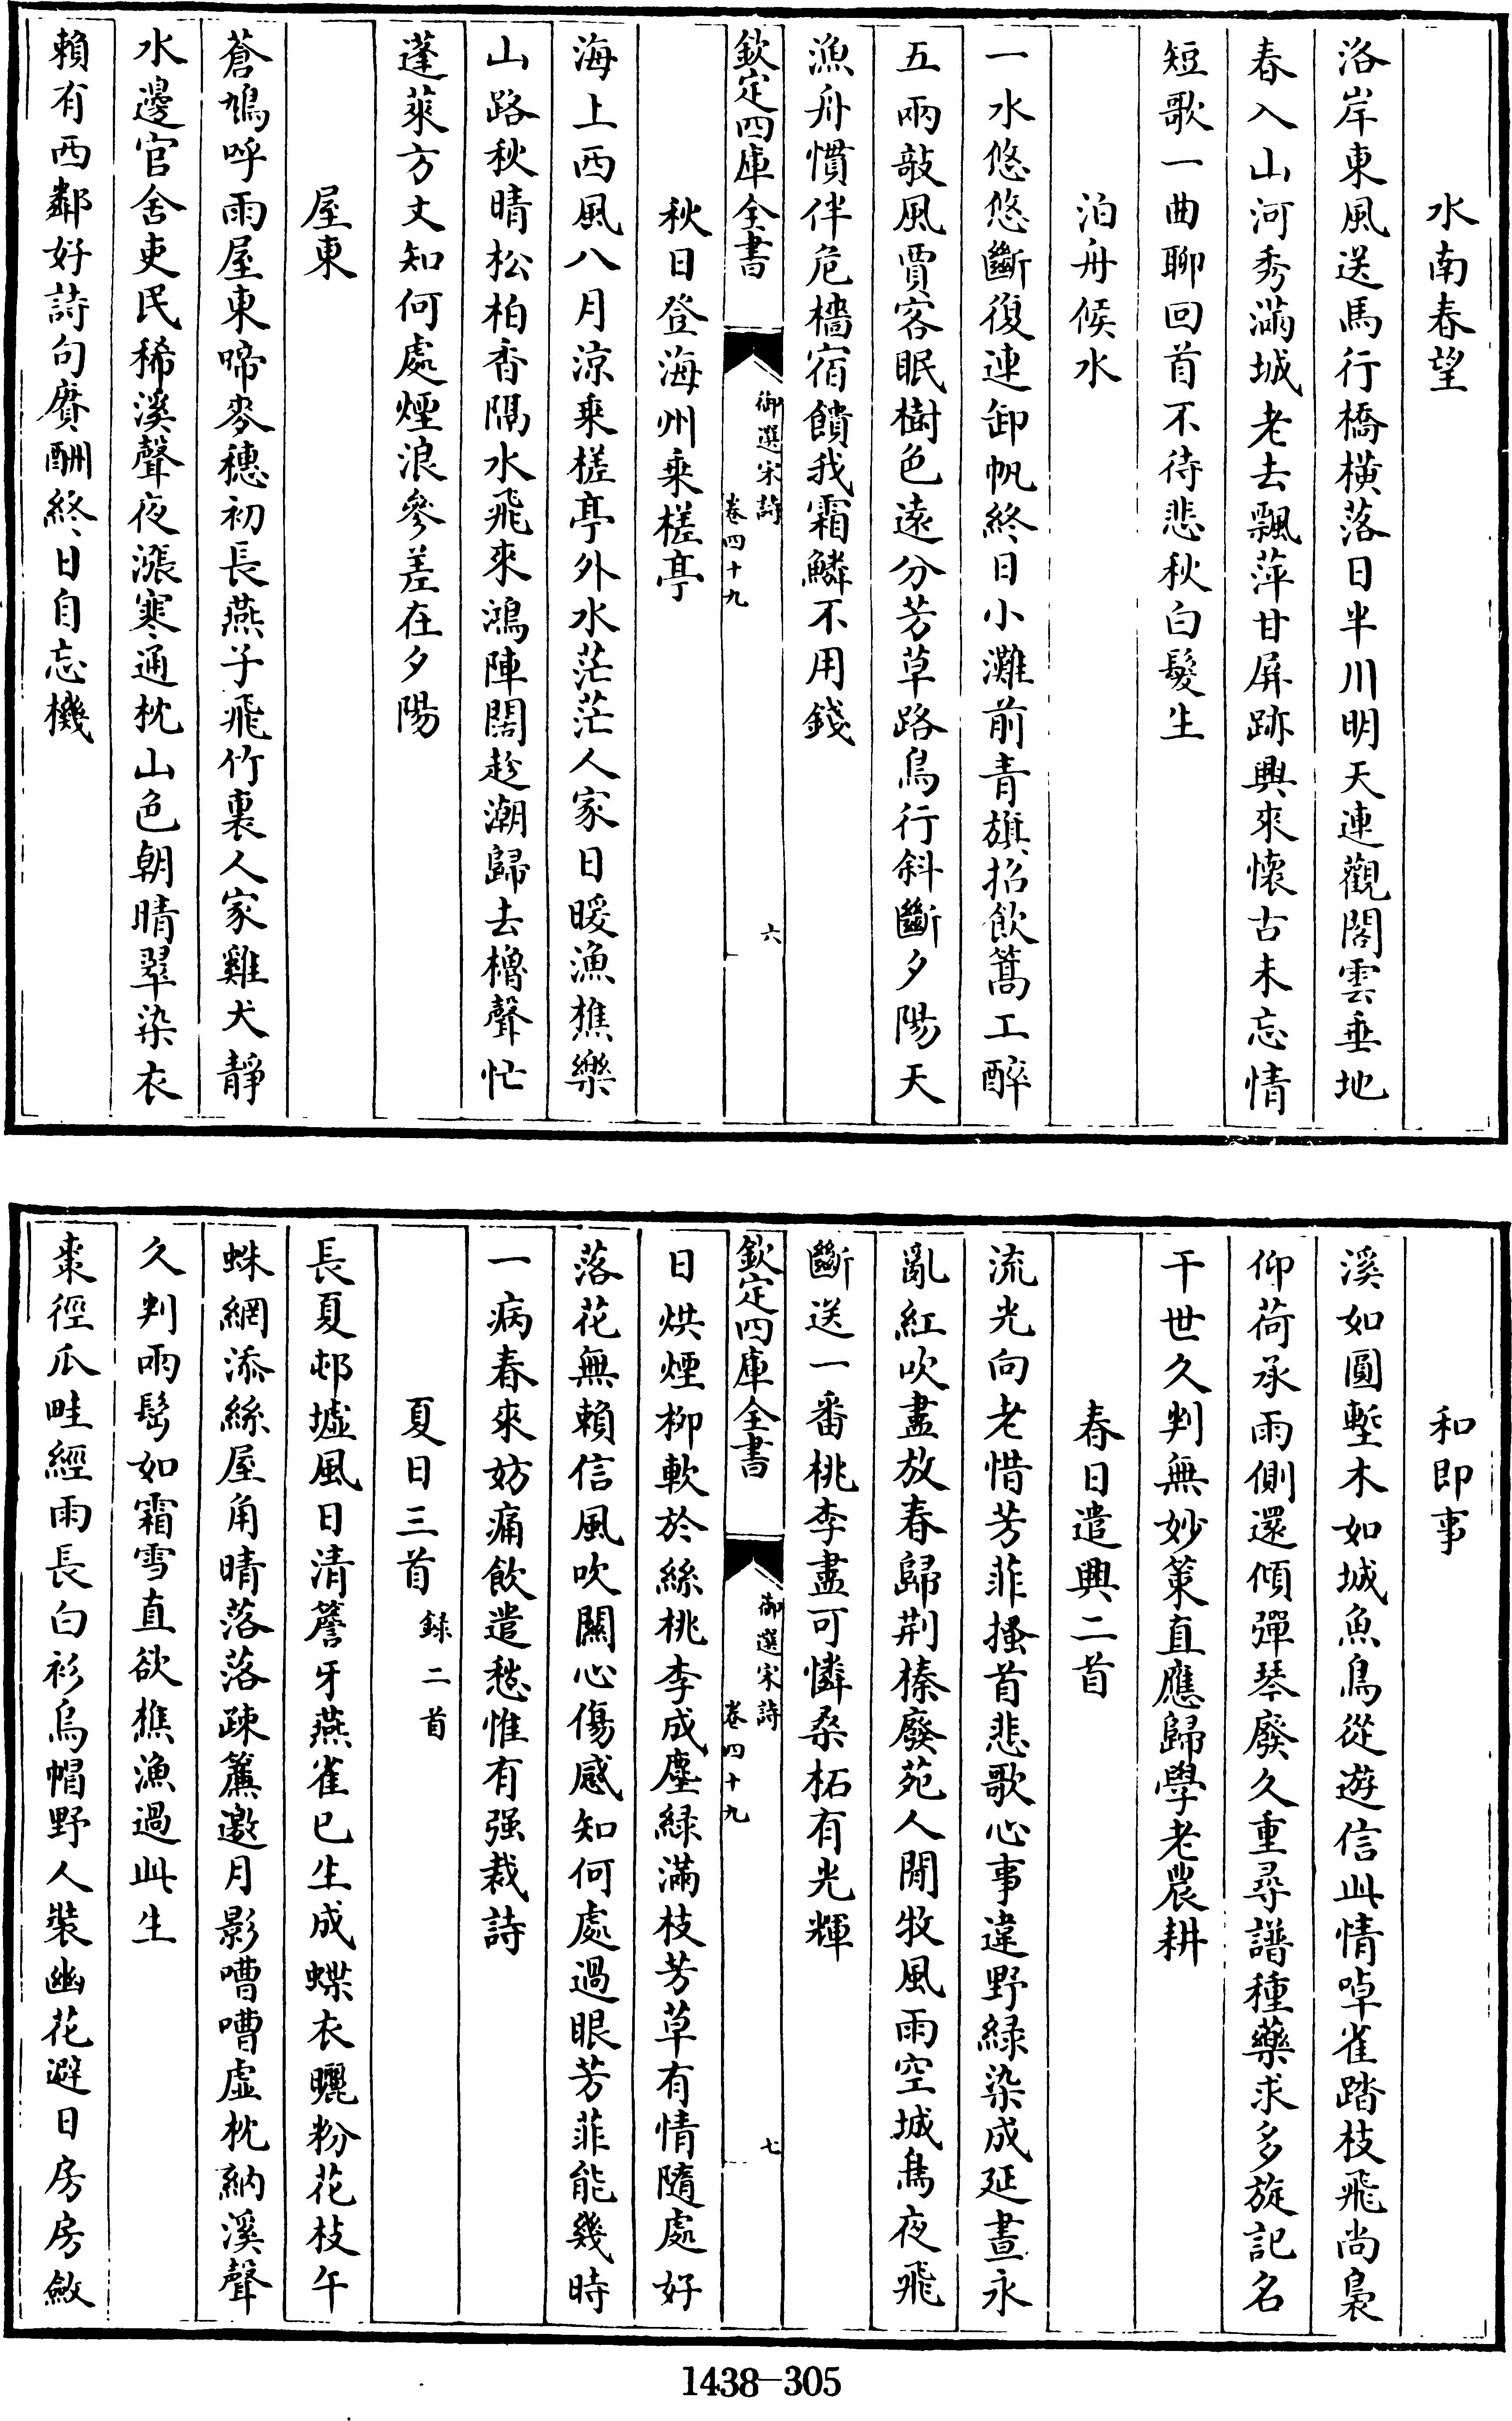 水南春望
洛岸東風送馬行橋橫落日半川明天連觀閣雲垂地
春入山河秀滿城老去飄萍甘屏跡興來懷古未忘情
短歌一曲聊回首不待悲秋白髮生
泊舟候水
一水悠悠斷復連卸帆終日小灘前青旗招飲篙工醉
五兩敲風賈客眠樹色遠分芳草路鳥行斜斷夕陽天
漁舟慣伴危檣宿饋我霜鱗不用錢
欽定四庫全書
御選宋詩
卷四十九
六
秋日登海州乘槎亭
海上西風八月涼乘槎亭外水茫茫人家日暖漁樵樂
山路秋晴松柏香隔水飛來鴻陣闊趁潮歸去櫓聲忙
蓬萊方丈知何處煙浪參差在夕陽
屋東
蒼鳩呼雨屋東啼麥穗初長燕子飛竹裏人家雞犬靜
水邊官舍吏民稀溪聲夜漲寒通枕山色朝晴翠染衣
賴有西鄰好詩句賡酬終日自忘機
和即事
溪如圓塹木如城魚鳥從遊信此情啅雀踏枝飛尚裊
仰荷承雨側還傾彈琴廢久重尋譜種藥求多旋記名
干世久判無妙策直應歸學老農耕
春日遣興二首
流光向老惜芳菲搔首悲歌心事違野綠染成延晝永
亂紅吹盡放春歸荆榛廢苑人閒牧風雨空城鳥夜飛
斷送一番桃李盡可憐桑柘有光輝
欽定四庫全書
御選宋詩
卷四十九
七
日烘煙柳軟於絲桃李成塵綠滿枝芳草有情隨處好
落花無賴信風吹關心傷感知何處過眼芳菲能幾時
一病春來妨痛飲遣愁惟有强裁詩
夏日三首 録二首
長夏邨墟風日清簷牙燕雀已生成蝶衣曬粉花枝午
蛛網添絲屋角晴落落疎簾邀月影嘈嘈虛枕納溪聲
久判兩鬂如霜雪直欲樵漁過此生
棗徑瓜畦經雨長白衫烏帽野人裝幽花避日房房斂
1438-305